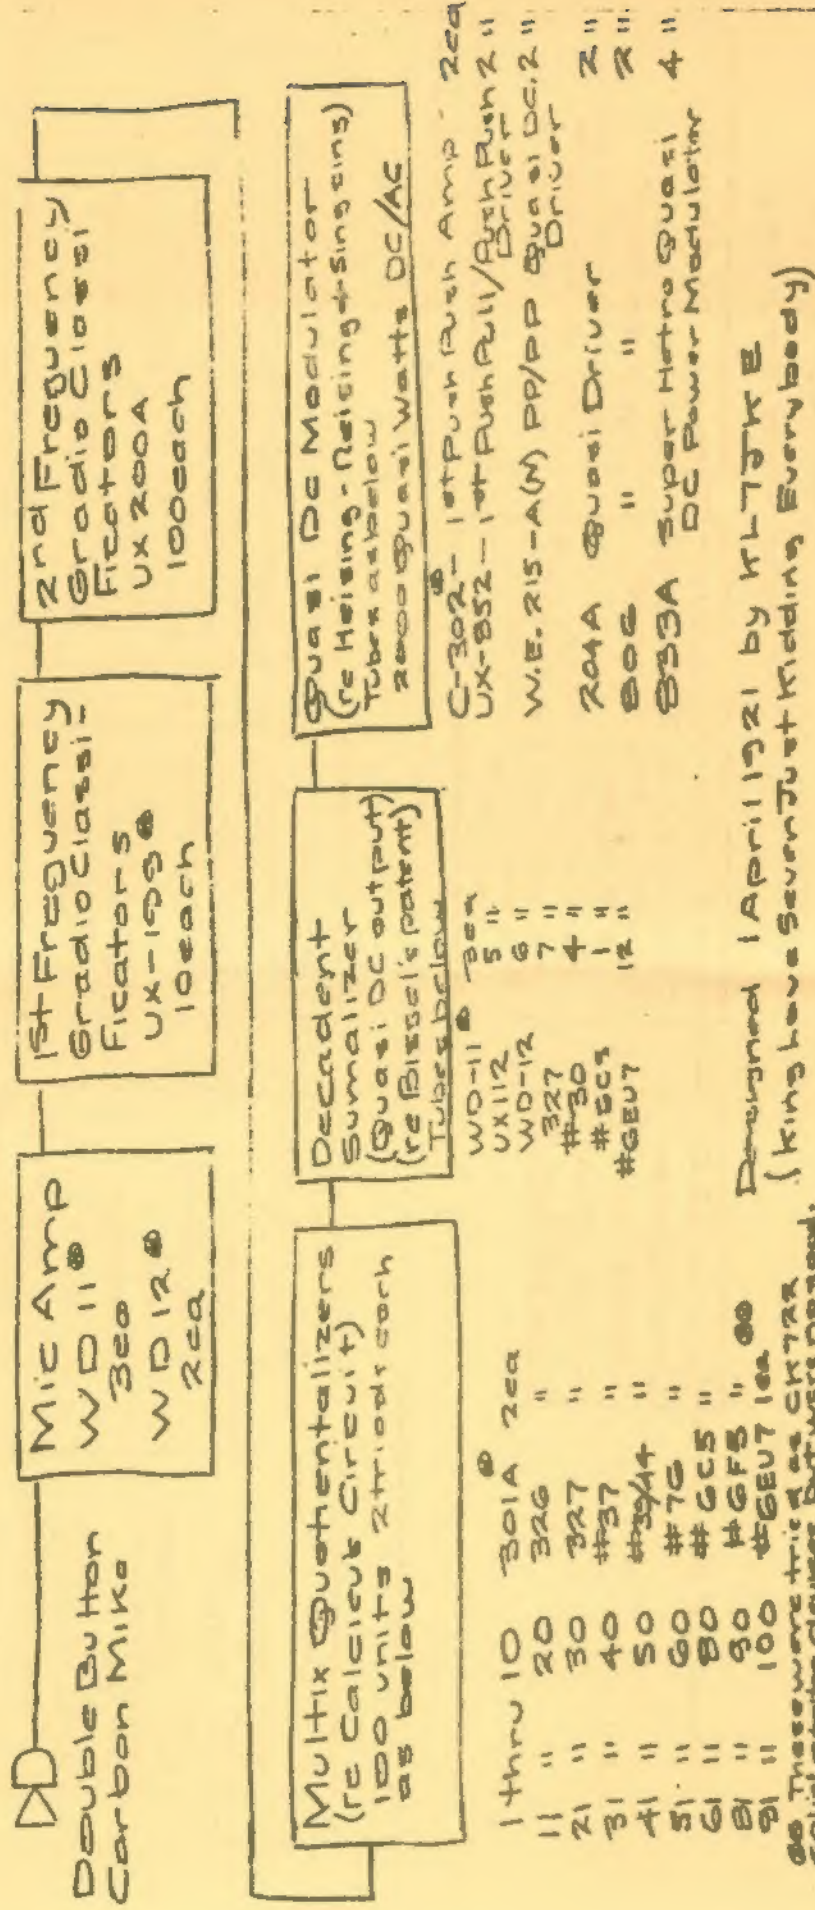 Double Button
Carbon Mike
Mic Amp
WD 11 ⊛
3ea
WD 12 ⊛
2ea
1st Frequency
Gradio Classi-
Ficators
UX-199 ⊛
10each
2nd Frequency
Gradio Classi
Ficators
UX 200A
100each
Multix Quotientalizers
(re Calcicub Circuit)
100 units 2triods each
as below
1 thru 10 301A ⊛ 2ea
11 " 20 326 "
21 " 30 327 "
31 " 40 #37 "
41 " 50 #39/44 "
51 " 60 #76 "
61 " 80 #6C5 "
81 " 90 #6F5 " ⊛⊛
91 " 100 #6EU7 1ea
⊛⊛ These were tried as CK722
solid state devices but were no good.
Decadent
Sumalizer
(Quasi DC output)
(re Bissel's patent)
Tubes below
WD-11 ⊛ 3ea
UX112 5 "
WD-12 6 "
327 7 "
#30 4 "
#6C5 1 "
#6EU7 12 "
Quasi Dc Modulator
(re Heising-Reising+Singsing)
Tubes as below
2000 Quasi Watts DC/AC
C-302 ⊛ - 1st Push Push Amp - 2ea
UX-852 - 1st Push Pull/Push Push 2 "
Driver
W.E. 215-A(N) PP/PP Quasi DC. 2 "
Driver
204A Quasi Driver 2 "
806 " " 2 "
833A Super Hetro Quasi 4 "
DC Power Modulator
Designed 1 April 1921 by KL7JKE
(King have Seven Just Kidding Everybody)